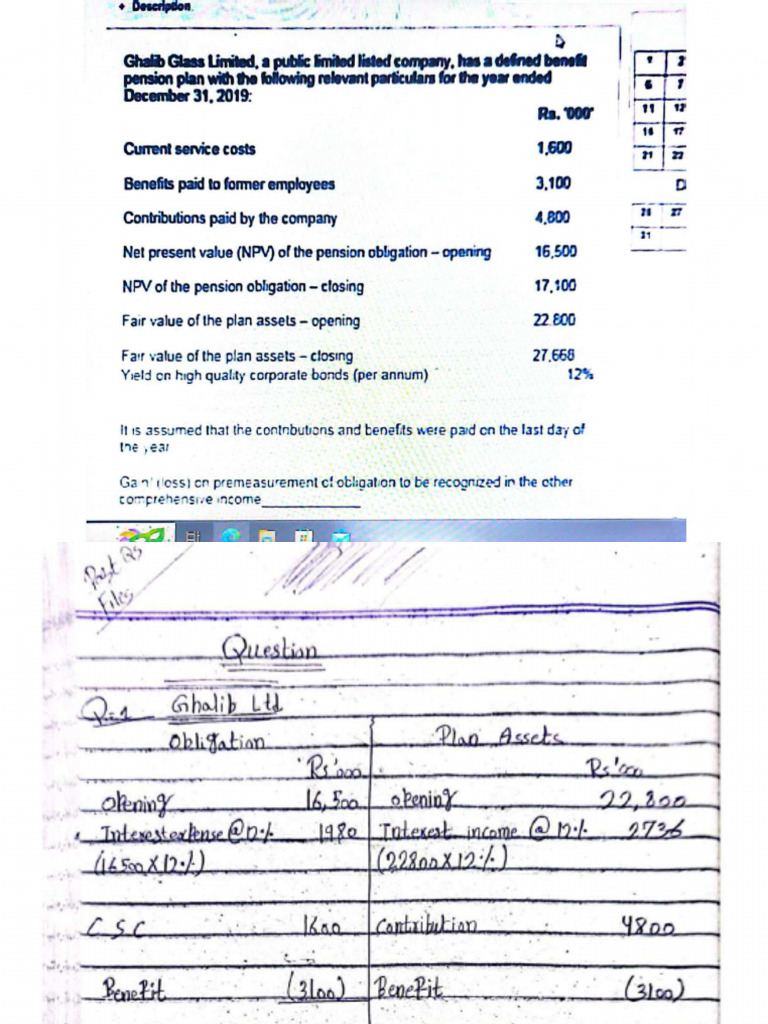 + Description
Ghalib Glass Limited, a public limited listed company, has a defined benefit
pension plan with the following relevant particulars for the year ended
December 31, 2019:
Rs. '000'
Current service costs 1,600
Benefits paid to former employees 3,100
Contributions paid by the company 4,800
Net present value (NPV) of the pension obligation – opening 16,500
NPV of the pension obligation – closing 17,100
Fair value of the plan assets – opening 22,800
Fair value of the plan assets – closing 27,668
Yield on high quality corporate bonds (per annum) 12%
It is assumed that the contributions and benefits were paid on the last day of
the year
Gain/ (loss) on premeasurement of obligation to be recognized in the other
comprehensive income
6 7
11 12
16 17
21 22
D
26 27
31
Past Qs
Files
Question
Q=1 Ghalib Ltd
Obligation Plan Assets
Rs'000 Rs'000
Opening 16,500 opening 22,800
Interest expense @12% 1980 Interest income @ 12% 2736
(16500X12%) (22800X12%)
CSC 1600 Contribution 4800
Benefit (3100) Benefit (3100)